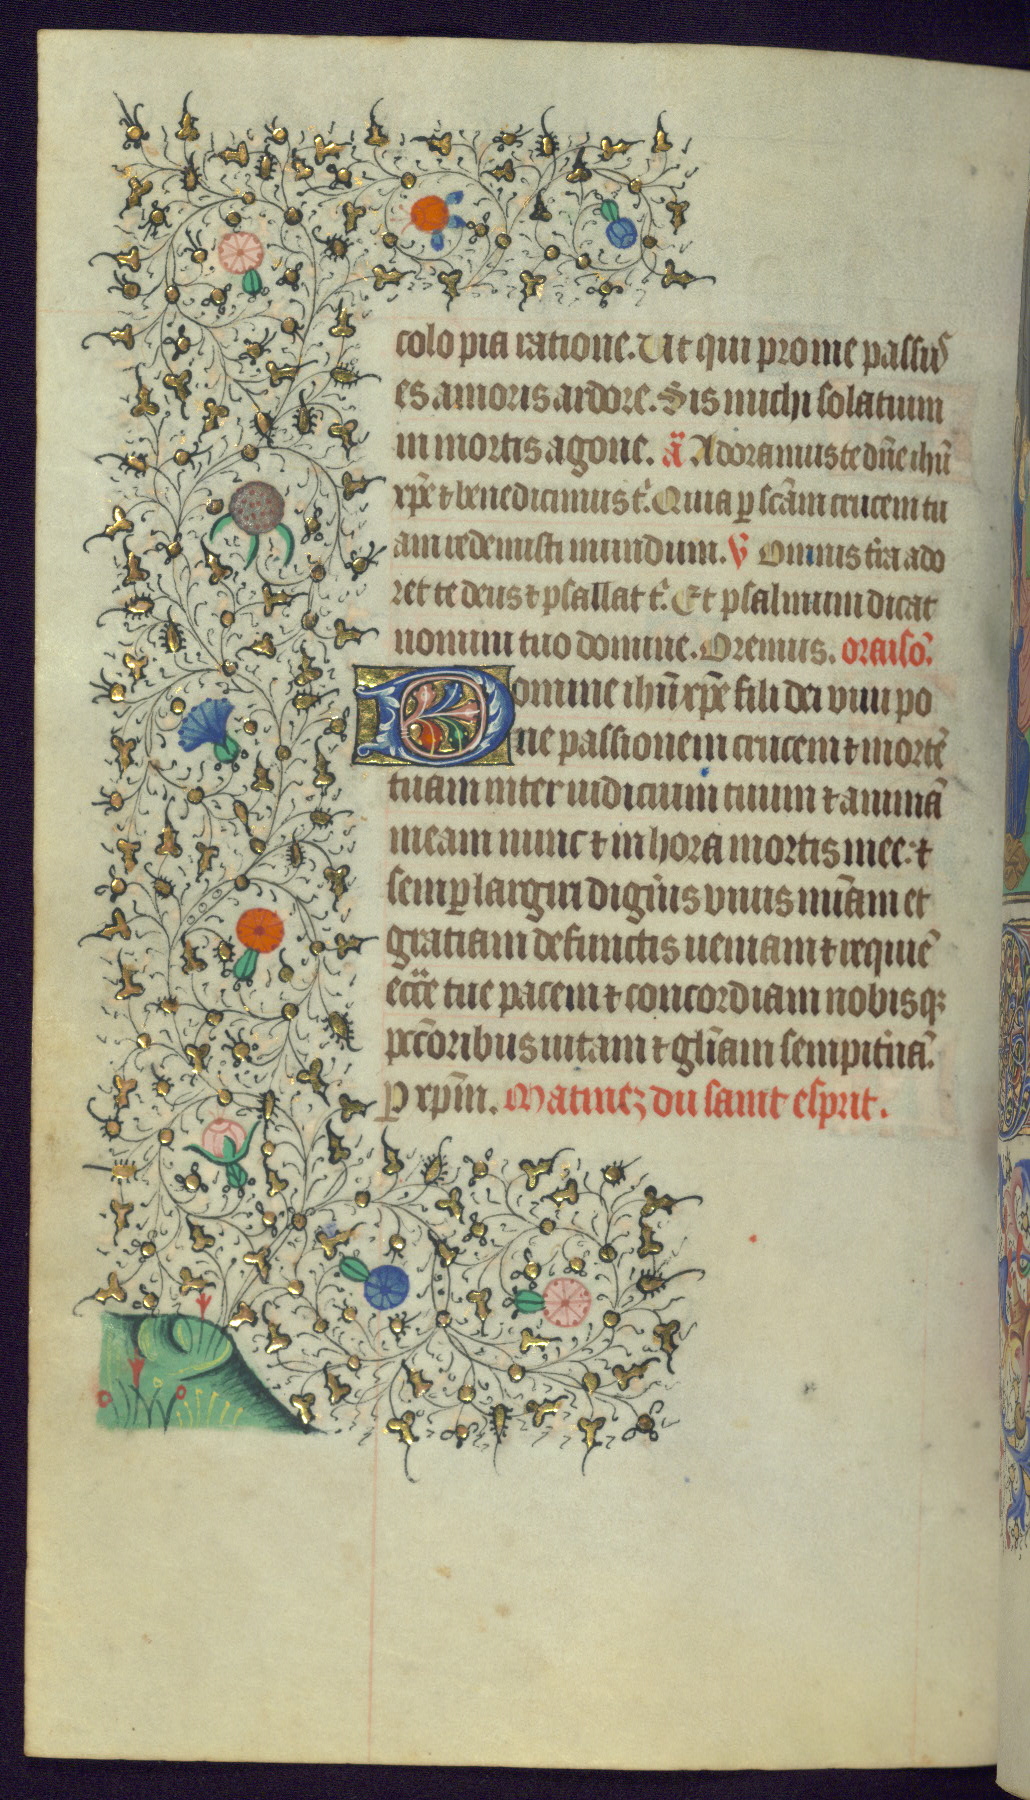 colo pia ratione. Ut qui pro me passus
es amoris ardore. Sis michi solatium
in mortis agone. ā Adoramus te dn̄e ihū
xp̄e ⁊ benedicimus t̄. Quia p̱ sc̄am crucem tu
am redemisti mundum. v̄ Omnis t̄ra ado
ret te deus ⁊ psallat t̄. Et psalmum dicat
nomini tuo domine. Oremus. oraiso̅.
Domine ihū xp̄e fili dei viui po
ne passionem crucem ⁊ morte̅
tuam inter iudicium tuum ⁊ animā
meam nunc ⁊ in hora mortis mee: ⁊
semp̱ largiri digne̅is viuis mīam et
gratiam defunctis ueniam ⁊ requie̅
ecc̄e tue pacem ⁊ concordiam nobisqꝫ
pcc̄oribus uitam ⁊ gl̄iam sempit̄nā.
P xp̄m. Matinez du saint esprit.